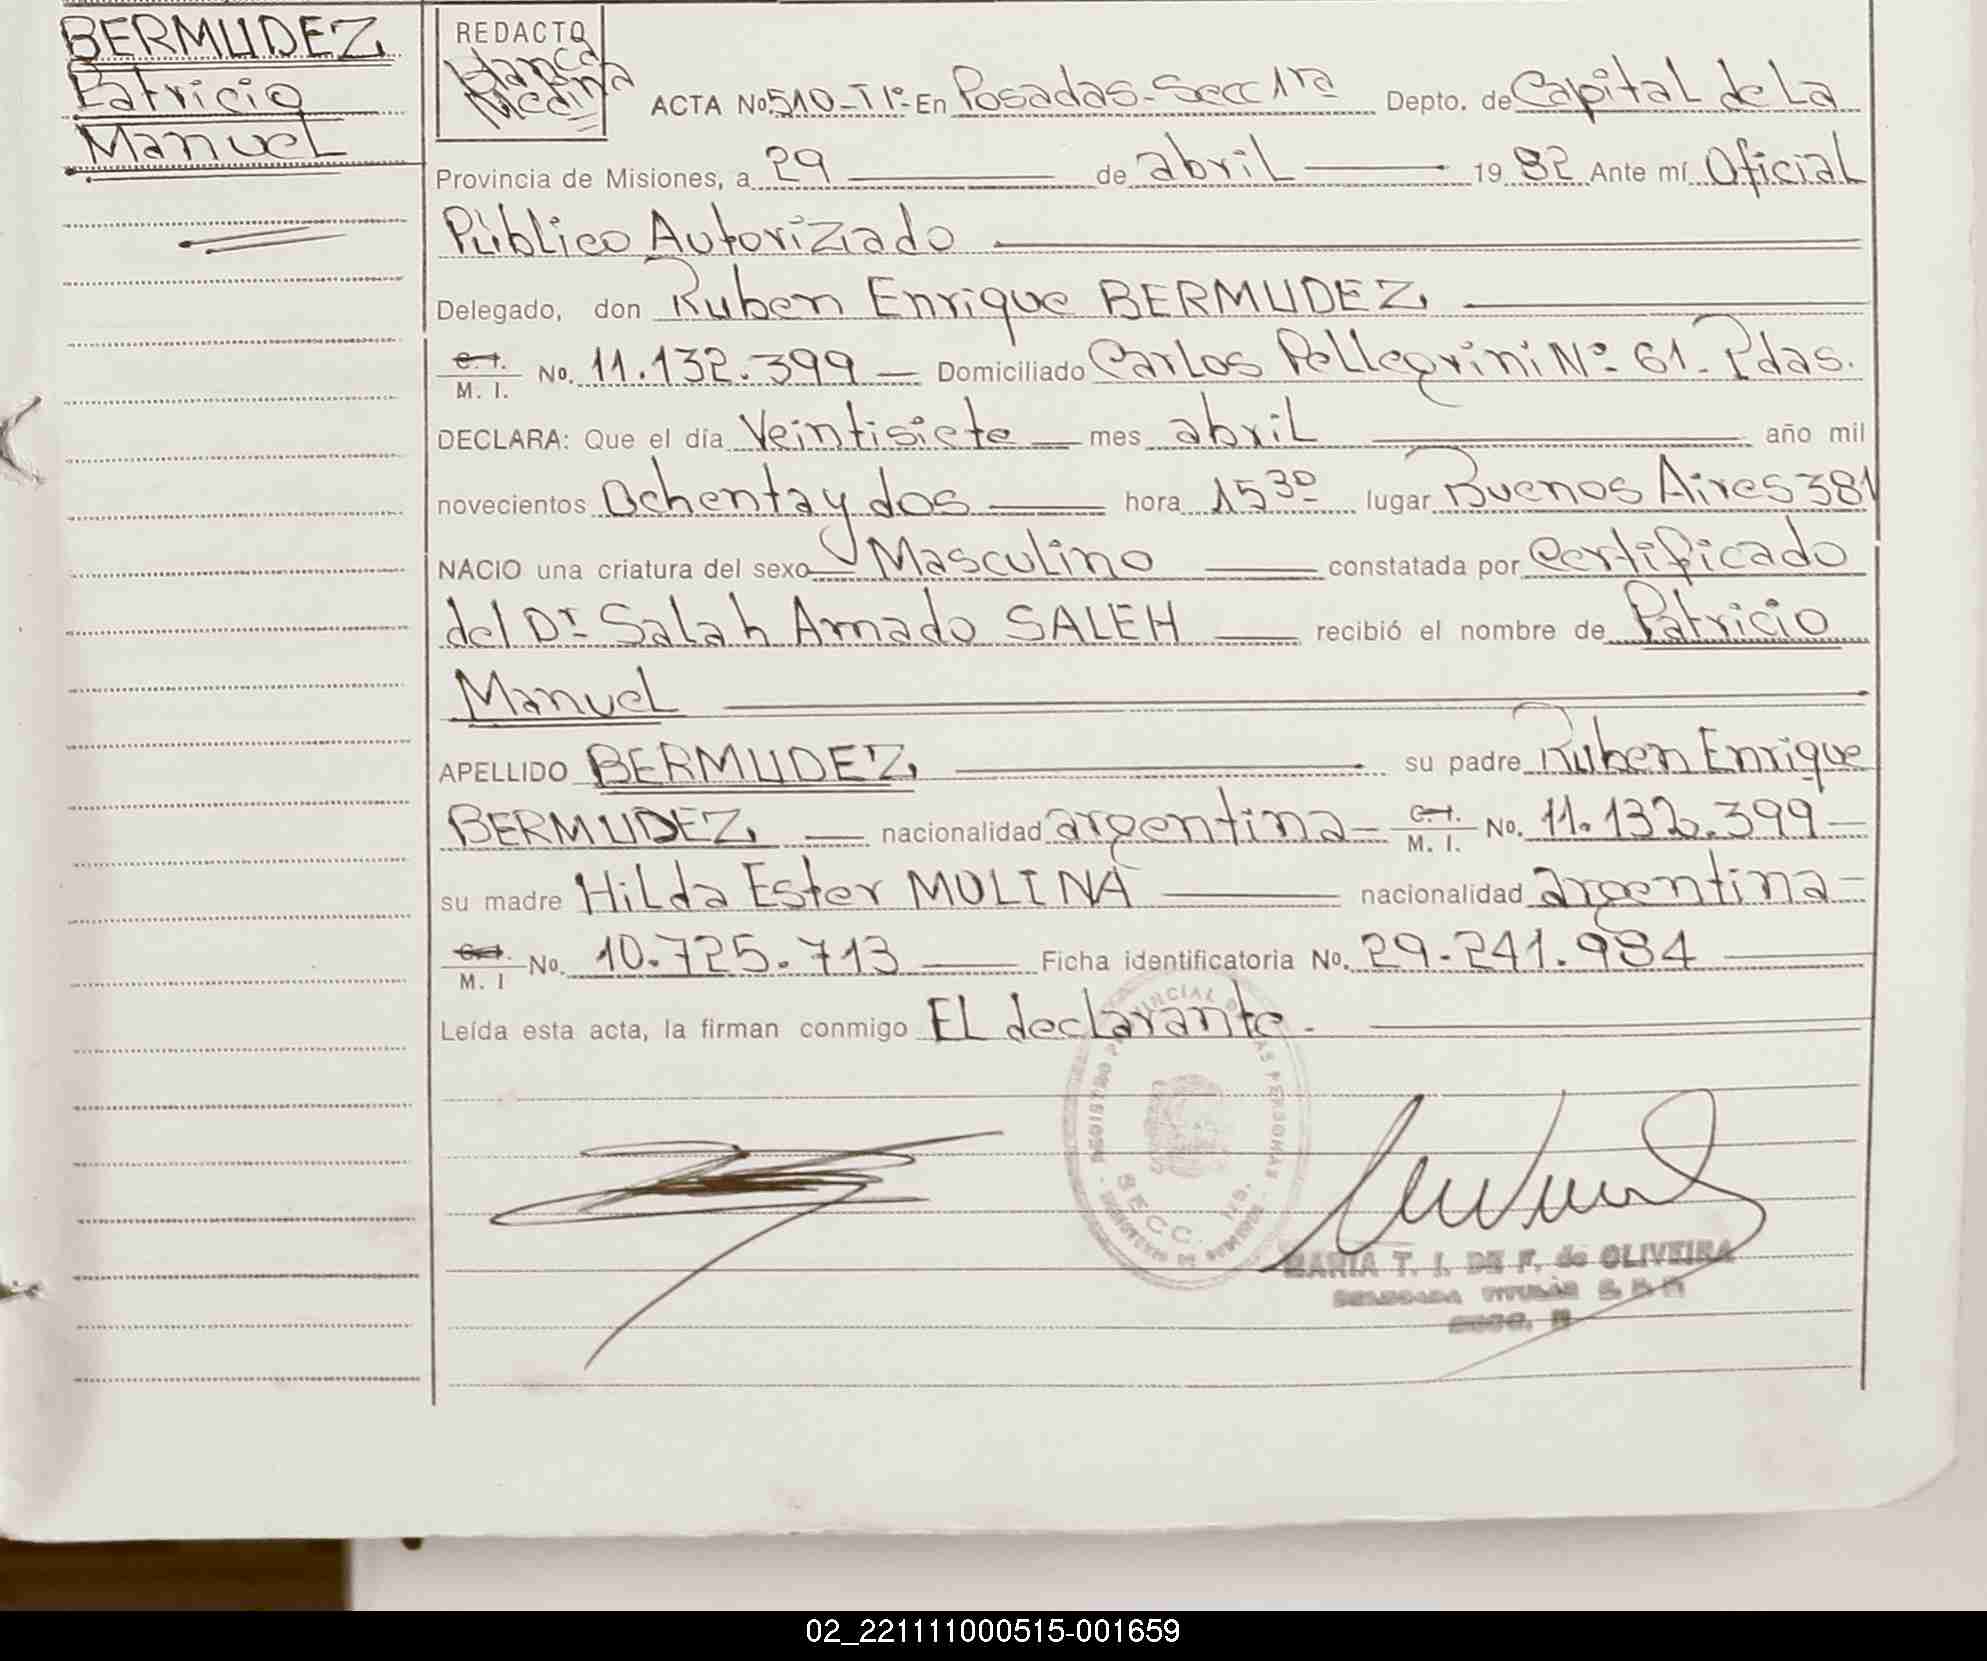 BERMUDEZ
Patricio
Manuel
REDACTO
Blanca
Medina
ACTA No. 510-T1º- En Posadas-Secc 1ra Depto. de Capital de La
Provincia de Misiones, a 29 de abril 1982 Ante mí Oficial
Público Autorizado
Delegado, don Ruben Enrique BERMUDEZ
C. I. M. I. No. 11.132.399 — Domiciliado Carlos Pellegrini Nº 61 - Pdas.
DECLARA: Que el día Veintisiete — mes abril año mil
novecientos Ochenta y dos hora 15 30 lugar Buenos Aires 381
NACIO una criatura del sexo Masculino constatada por Certificado
del Dr Salah Amado SALEH recibió el nombre de Patricio
Manuel
APELLIDO BERMUDEZ su padre Ruben Enrique
BERMUDEZ — nacionalidad argentina - C. I. M. I. No. 11.132.399 -
su madre Hilda Ester MOLINA nacionalidad argentina -
M. I No. 10.725.713 Ficha identificatoria No. 29.241.984
Leída esta acta, la firman conmigo El declarante.
REGISTRO PROVINCIAL DE LAS PERSONAS
SECC.
MARIA T. I. DE F. de OLIVEIRA
DELEGADA TITULAR
02_221111000515-001659